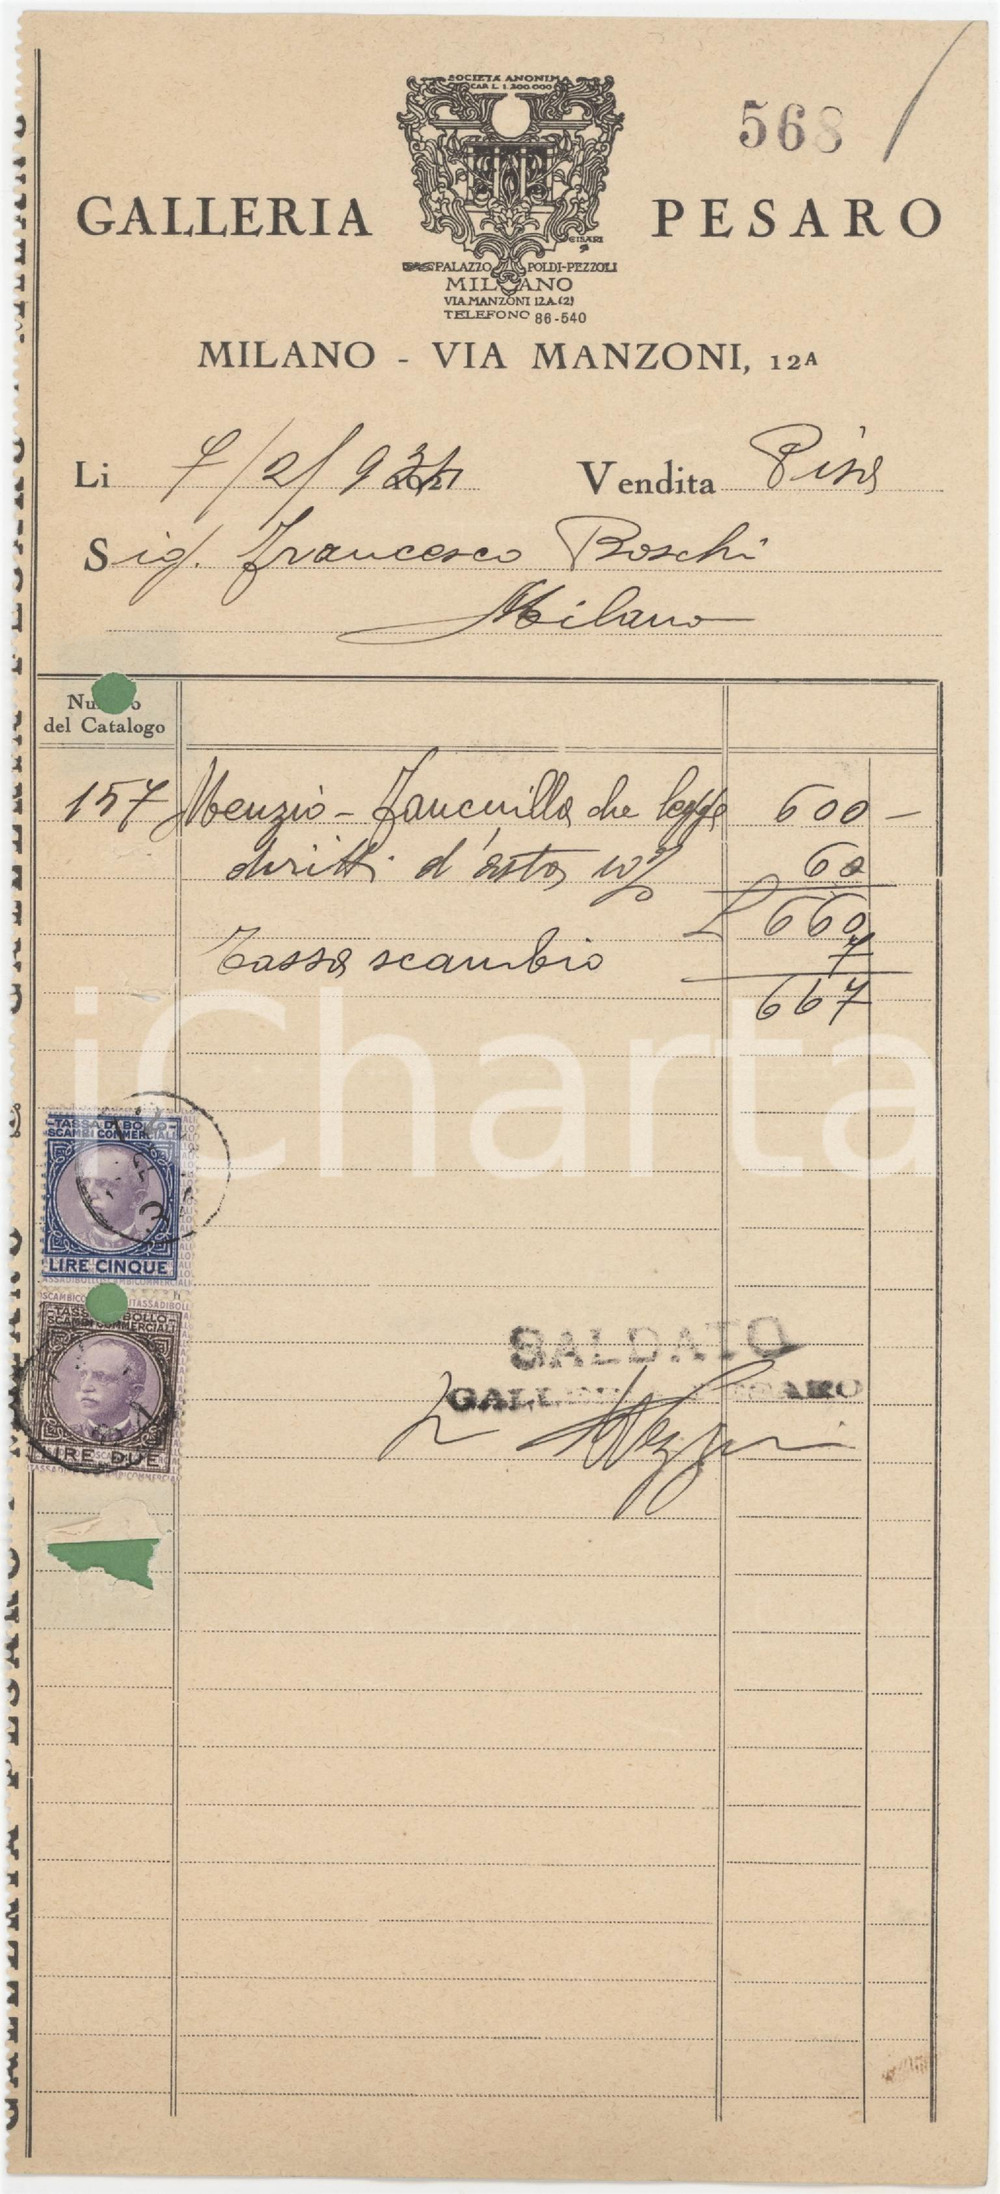 SOCIETÀ ANONIMA
CAP. L. 1.200.000
568
GALLERIA PESARO
CISARI
PALAZZO POLDI-PEZZOLI
MILANO
VIA MANZONI 12A (2)
TELEFONO 86-540
MILANO - VIA MANZONI, 12A
Li 7/2/ 93 Vendita Pisa
Sig. Francesco Boschi
Milano
Numero
del Catalogo
157 Menzio - Fanciulla che legge 600 -
diritti d'asta 10% 60
L 660
Tassa scambio 7
667
iCharta
TASSA DI BOLLO
SCAMBI COMMERCIALI
LIRE CINQUE
TASSA DI BOLLO
SCAMBI COMMERCIALI
LIRE DUE
SALDATO
GALLERIA PESARO
GALLERIA PESARO - MILANO